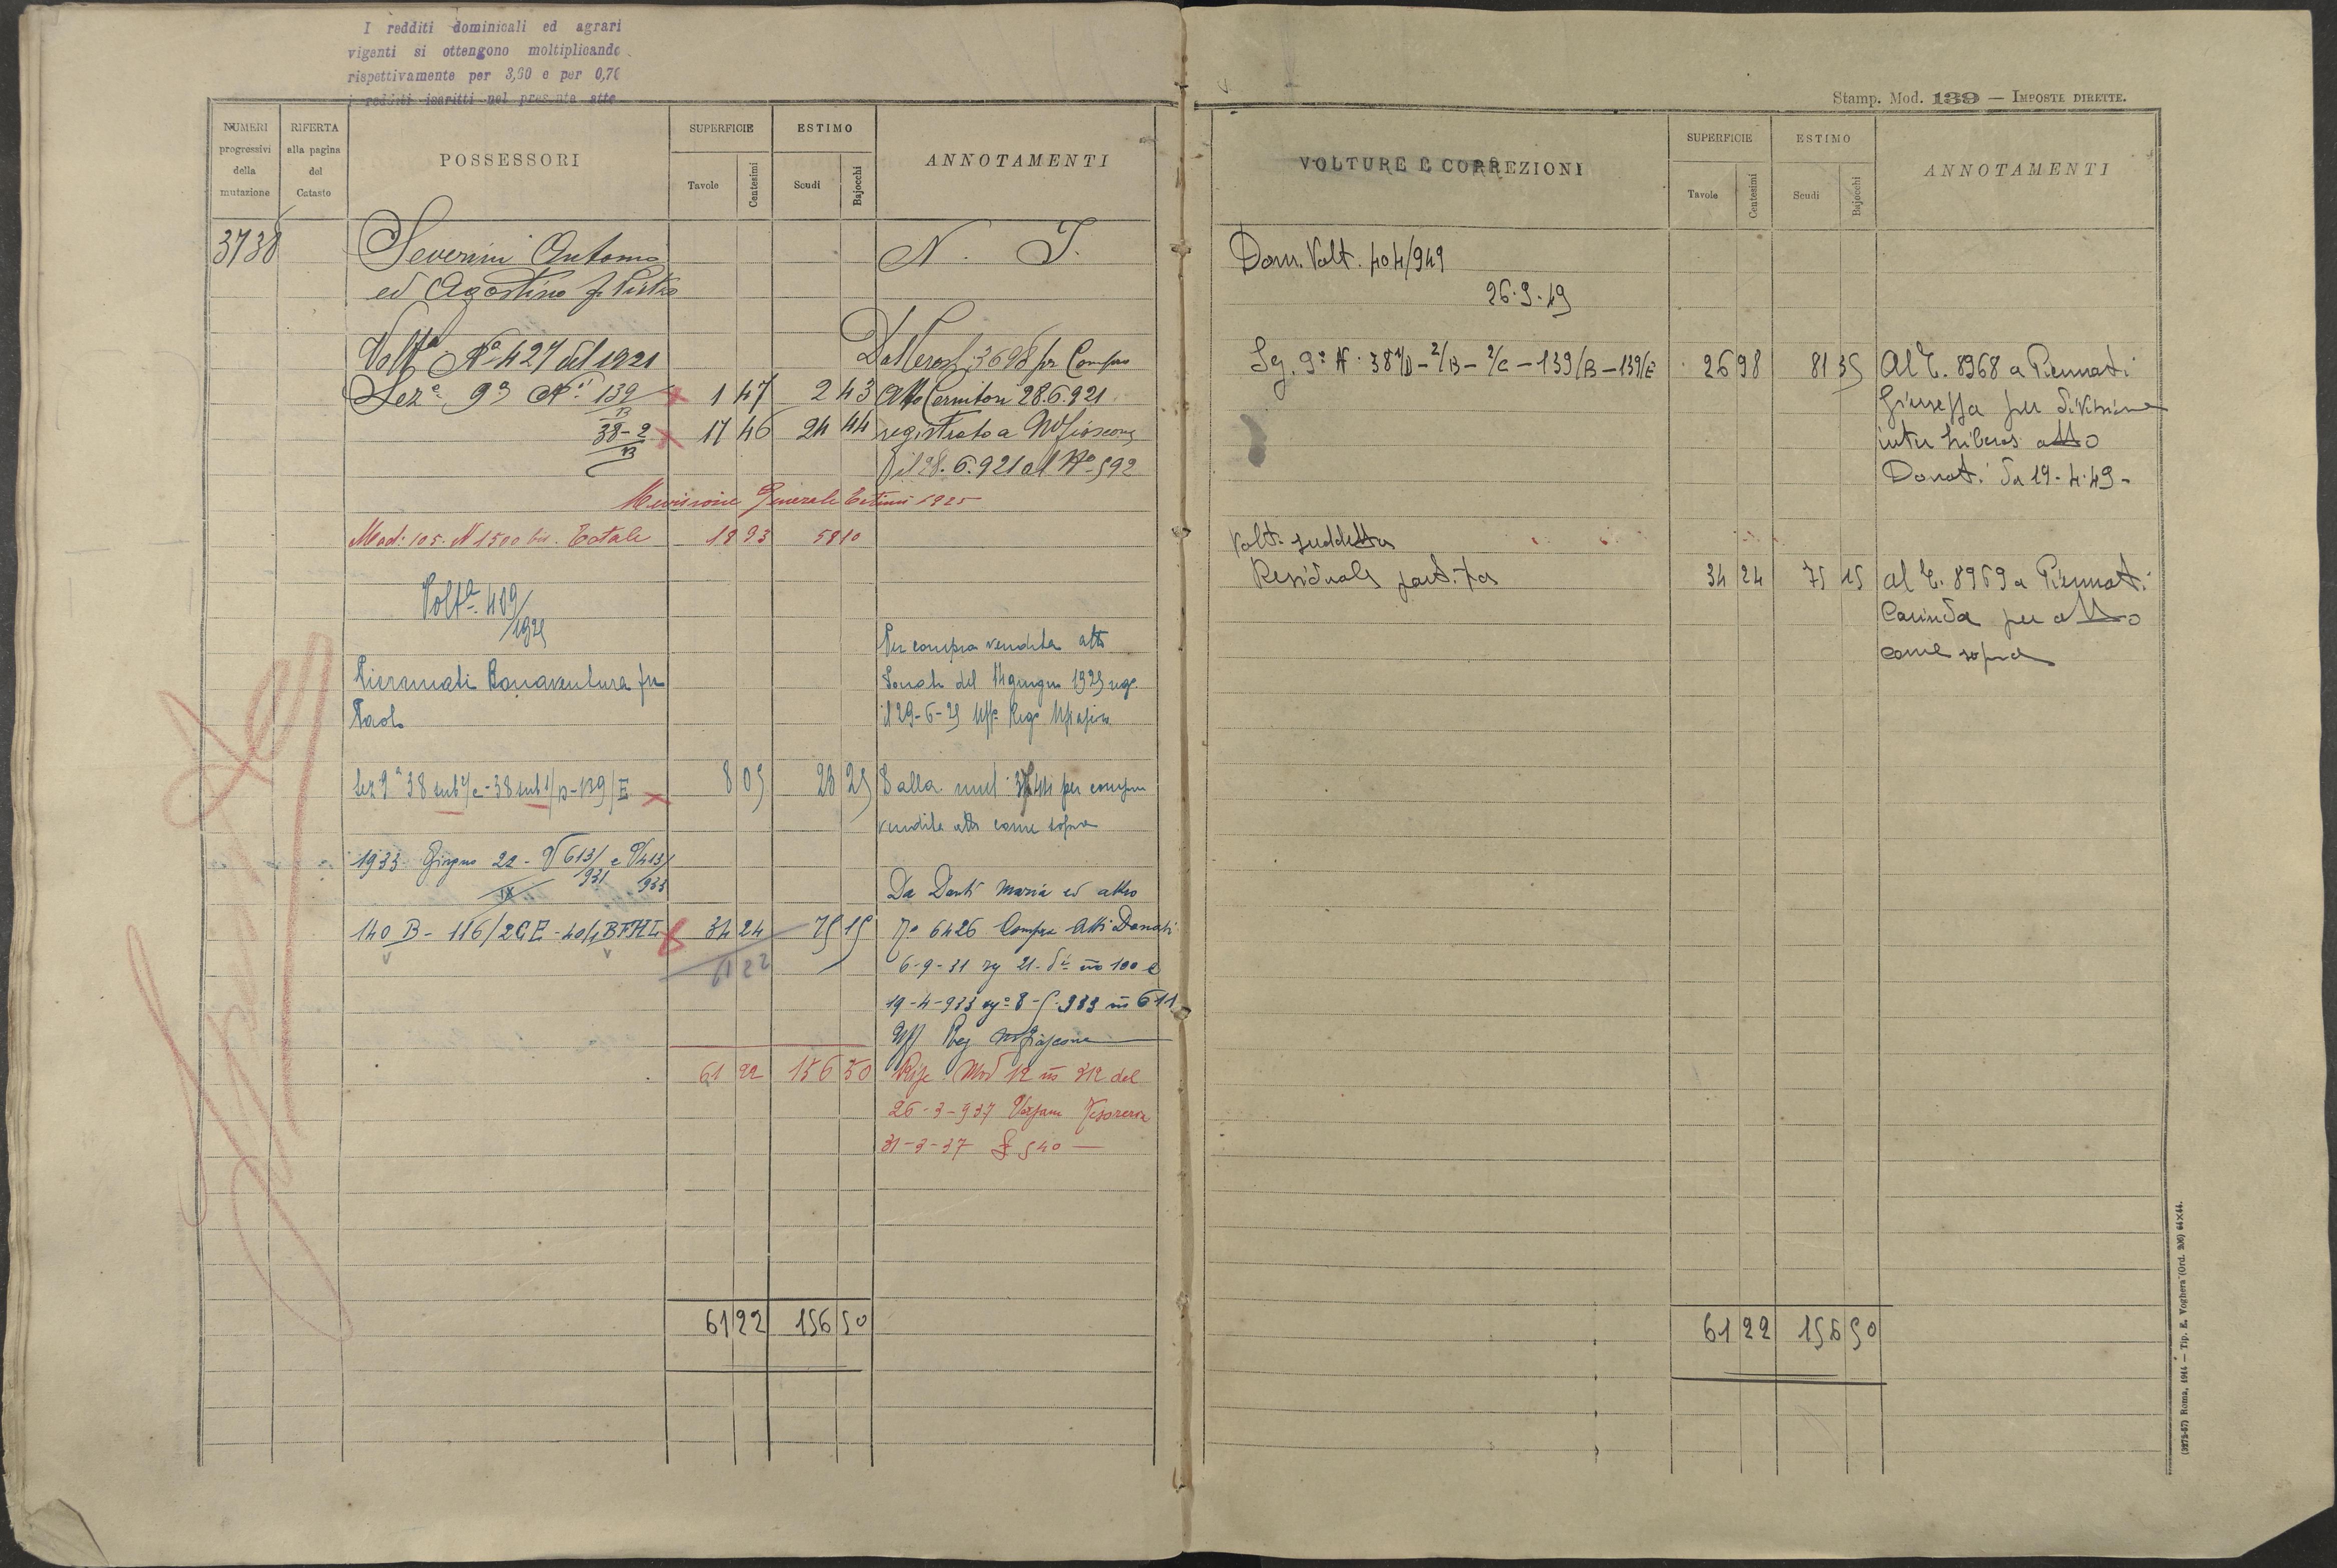 I redditi dominicali ed agrari
vigenti si ottengono moltiplicando
rispettivamente per 3,60 e per 0,70
i redditi iscritti nel presente atto
NUMERI progressivi della mutazione
RIFERTA alla pagina del Catasto
POSSESSORI
SUPERFICIE
Tavole
Centesimi
ESTIMO
Scudi
Bajocchi
ANNOTAMENTI
3738
Severini Antonio
N. T.
ed Agostino fu Pietro
Volt.a N.o 427 del 1921
Dal Terz. 3698 per Compra
Sez.e 9a N.i 139/B 1 47 2 43 Atto Cernitori 28.6.921
38-2/B 17 46 24 44 registrato a Mfiascone
il 28.6.921 al No 592
Revisione Generale Estimi 1925
Mod: 105. N 1500 bis. Totale 18 93 58 10
Volt.a 409/1929
Per compra vendita atto
Piermati Bonaventura fu
Donati del 14 giugno 1929 reg.
Paolo
il 29-6-29 Uff. Rego Mfiascone
Sez 9a 38 sub 2/c - 38 sub 1/D - 139/E 8 05 28 25 Dalla mut. 3744 per compra
vendita atto come sopra
1933 Giugno 22 - V 613/931 e V 413/933
IX
Da Danti Maria ed altro
140 B - 116/2 C E - 40/1 B F H L 34 24 75 15 To 6426 Compra Atti Donati
61 22
6-9-31 rg 21. do no 100 e
19-4-933 rgo 8-5-933 no 611
Uff Reg Mfiascone
61 22 156 50 Rife. Mod 12 no 312 del
26-3-937 Versam Tesoreria
31-3-37 £ 540 —
61 22 156 50
Stamp. Mod. 139 — IMPOSTE DIRETTE.
VOLTURE E CORREZIONI
SUPERFICIE
Tavole
Centesimi
ESTIMO
Scudi
Bajocchi
ANNOTAMENTI
Dom. Volt. 404/949
26.9.49
Sez. 9a N. 38 1/D - 2/B - 2/C - 139/B - 139/E 26 98 81 35 Al T. 8968 a Piermati
Giuseppa per divisione
inter liberos atto
Donati da 19-4-49-
Volt. suddetta
Residuale partita 34 24 75 15 al T. 8969 a Piermati
Carinda per atto
come sopra
61 22 156 50
(3273-57) Roma, 1914 — Tip. E. Voghera (Ord. 206) 64×44.